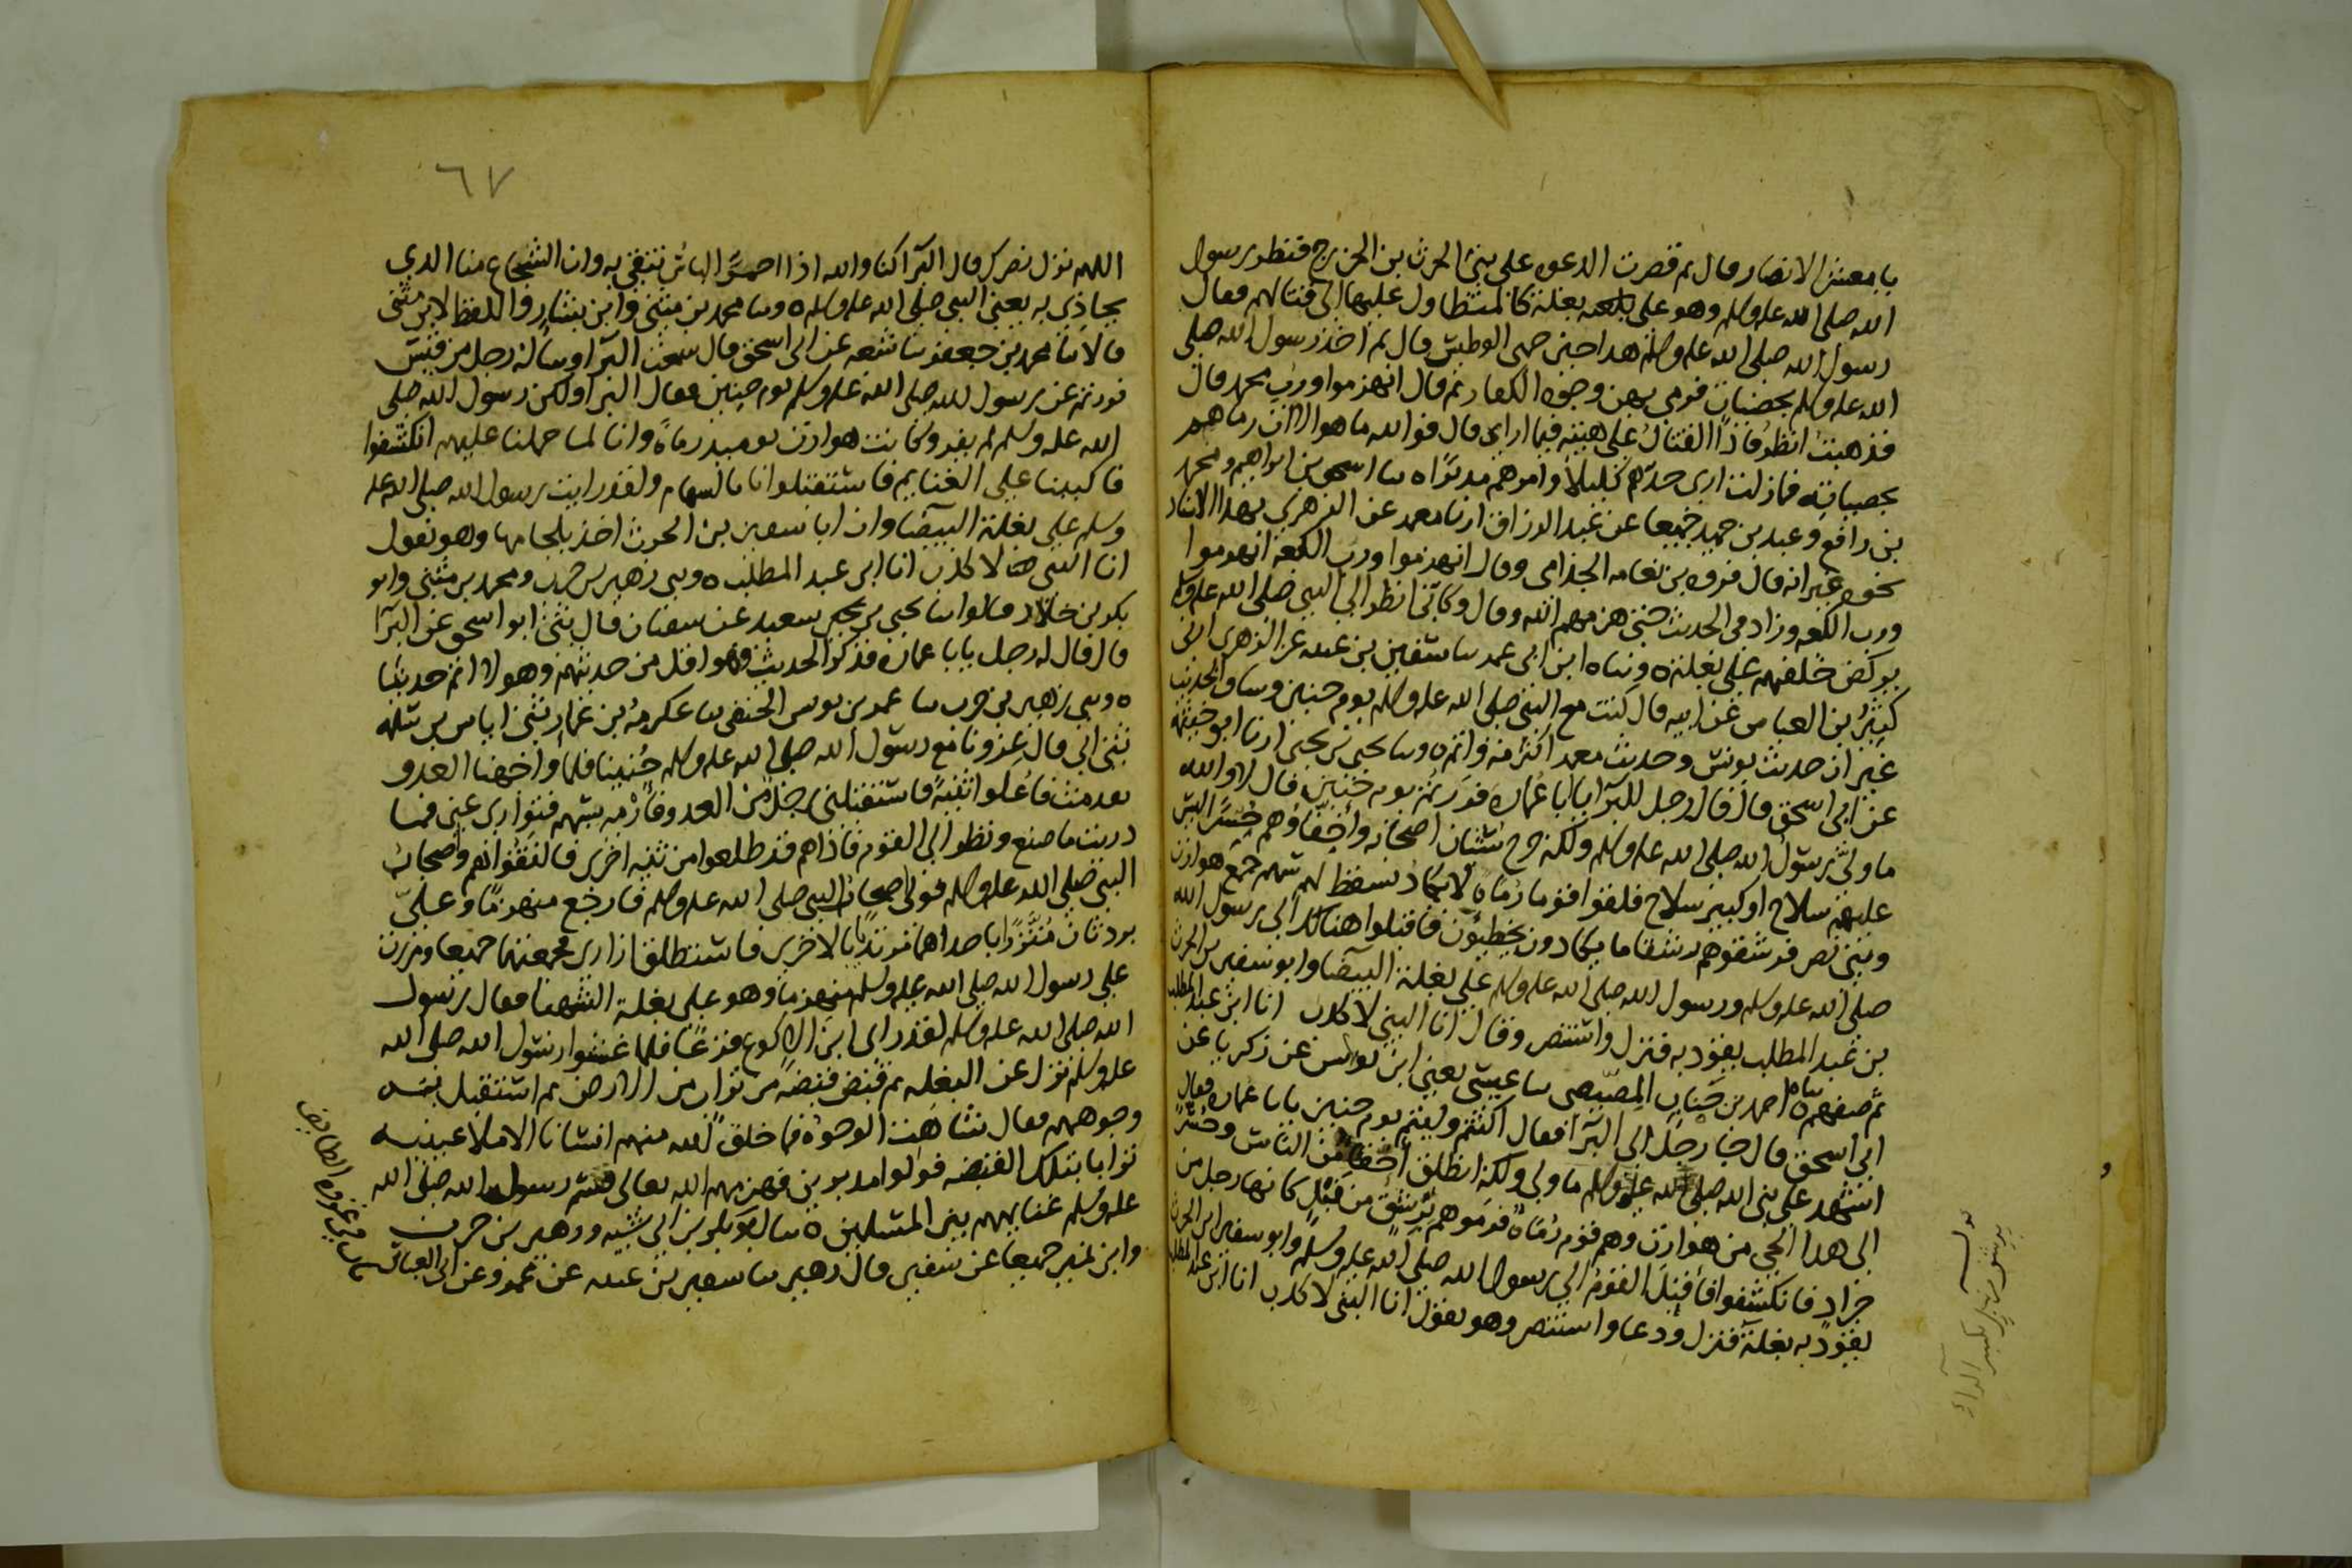 يا معشر الانصار قال ثم قصرت الدعوه على بني الحرث بن الخزرج فنظر رسول
الله صلى الله عليه وسلم وهو على بغلته كالمتطاول عليها الى قتالهم فقال
رسول الله صلى الله عليه وسلم هذا حين حمي الوطيس قال ثم اخذ رسول الله صلى
الله عليه وسلم حصيات فرمى بهن وجوه الكفار ثم قال انهزموا ورب محمد قال
فذهبت انظر فاذا القتال على هيئته فيما ارى قال فوالله ما هو الا ان رماهم
بحصياته فما زلت ارى حدهم كليلا وامرهم مدبرا ه سا اسحق بن ابراهيم ومحمد
بن رافع وعبد بن حميد جميعا عن عبد الرزاق ارنا معمر عن الزهري بهذا الاسناد
نحوه غير انه قال فروه بن نعامه الجذامي وقال انهزموا ورب الكعبه انهزموا
ورب الكعبه وزاد في الحديث حتى هزمهم الله وقال وكاني انظر الى النبي صلى الله عليه وسلم
يركض خلفهم على بغلته ه وساه ابن ابي عمر سا سفين بن عيينه عن الزهري اخبرني
كثير بن العباس عن ابيه قال كنت مع النبي صلى الله عليه وسلم يوم حنين وساق الحديث
غير ان حديث يونس وحديث معمر اكثر منه واتم ه وسا يحيى بن يحيى ارنا ابو خيثمه
عن ابي اسحق قال قال رجل للبرا يابا عماره فررتم يوم حنين قال لا والله
ما ولى رسول الله صلى الله عليه وسلم ولكنه خرج شبان اصحابه واخفاؤهم حسرا ليس
عليهم سلاح او كبير سلاح فلقوا قوما رماة لا يكاد يسقط لهم سهم جمع هوازن
وبني نصر فرشقوهم رشقا ما يكادون يخطئون فاقبلوا هناك الى رسول الله
صلى الله عليه وسلم ورسول الله صلى الله عليه وسلم على بغلته البيضا وابو سفين بن الحرث
بن عبد المطلب يقود به فنزل واستنصر وقال انا النبي لا كذب انا ابن عبد المطلب
ثم صفهم ه ساه احمد بن جناب المصيصي سا عيسى يعني ابن يونس عن زكريا عن
ابي اسحق قال جا رجل الى البرا فقال اكنتم وليتم يوم حنين يابا عماره فقال
اشهد على نبي الله صلى الله عليه وسلم ما ولى ولكنه انطلق اخفا من الناس وحسر
الى هذا الحي من هوازن وهم قوم رماة فرموهم برشق من نبل كانها رجل من
جراد فانكشفوا فاقبل القوم الى رسول الله صلى الله عليه وسلم وابو سفين ابن الحرث
يقود به بغلته فنزل ودعا واستنصر وهو يقول انا النبي لا كذب انا ابن عبد المطلب
٦٧
اللهم نزل نصرك قال البرا كنا والله اذا احمر الباس نتقي به وان الشجاع منا الذي
يحاذي به يعني النبي صلى الله عليه وسلم ه وسا محمد بن مثنى وابن بشار واللفظ لابن مثنى
قالا سا محمد بن جعفر سا شعبه عن ابي اسحق قال سمعت البرا وساله رجل من قيس
فررتم عن رسول الله صلى الله عليه وسلم يوم حنين فقال البرا ولكن رسول الله صلى
الله عليه وسلم لم يفر وكانت هوازن يوميذ رماة وانا لما حملنا عليهم انكشفوا
فاكببنا على الغنايم فاستقبلونا بالسهام ولقد رايت رسول الله صلى الله عليه
وسلم على بغلته البيضا وان ابا سفين بن الحرث اخذ بلجامها وهو يقول
انا النبي لا كذب انا ابن عبد المطلب ه وسي زهير بن حرب ومحمد بن مثنى وابو
بكر بن خلاد قالوا سا يحيى بن سعيد عن سفيان قال ثني ابو اسحق عن البرا
قال قال له رجل يابا عماره فذكر الحديث وهو اقل من حديثهم وهولا اتم حديثا
ه وسي زهير بن حرب سا عمر بن يونس الحنفي سا عكرمة بن عمار ثني اياس بن سلمه
ثني ابي قال غزونا مع رسول الله صلى الله عليه وسلم حنينا فلما واجهنا العدو
تقدمت فاعلوا ثنية فاستقبلني رجل من العدو فارميه بسهم فتوارى عني فما
دريت ما صنع ونظرت الى القوم فاذا هم قد طلعوا من ثنيه اخرى فالتقوا هم واصحاب
النبي صلى الله عليه وسلم فولى اصحاب النبي صلى الله عليه وسلم فارجع منهزما وعلي
بردتان متزرا باحداهما مرتديا بالاخرى فاستطلق ازاري فجمعتهما جميعا ومررت
على رسول الله صلى الله عليه وسلم منهزما وهو على بغلته الشهبا فقال رسول
الله صلى الله عليه وسلم لقد راى ابن الاكوع فزعا فلما غشوا رسول الله صلى الله
عليه وسلم نزل عن البغله ثم قبض قبضة من تراب من الارض ثم استقبل به
وجوههم فقال شاهت الوجوه فما خلق الله منهم انسانا الا ملا عينيه
ترابا بتلك القبضه فولوا مدبرين فهزمهم الله تعالى فقسم رسول الله صلى الله
عليه وسلم غنايمهم بين المسلمين ه سا ابو بكر بن ابي شيبه وزهير بن حرب
وابن نمير جميعا عن سفين قال زهير سا سفين بن عيينه عن عمرو عن ابي العباس
باب في غزوه الطايف